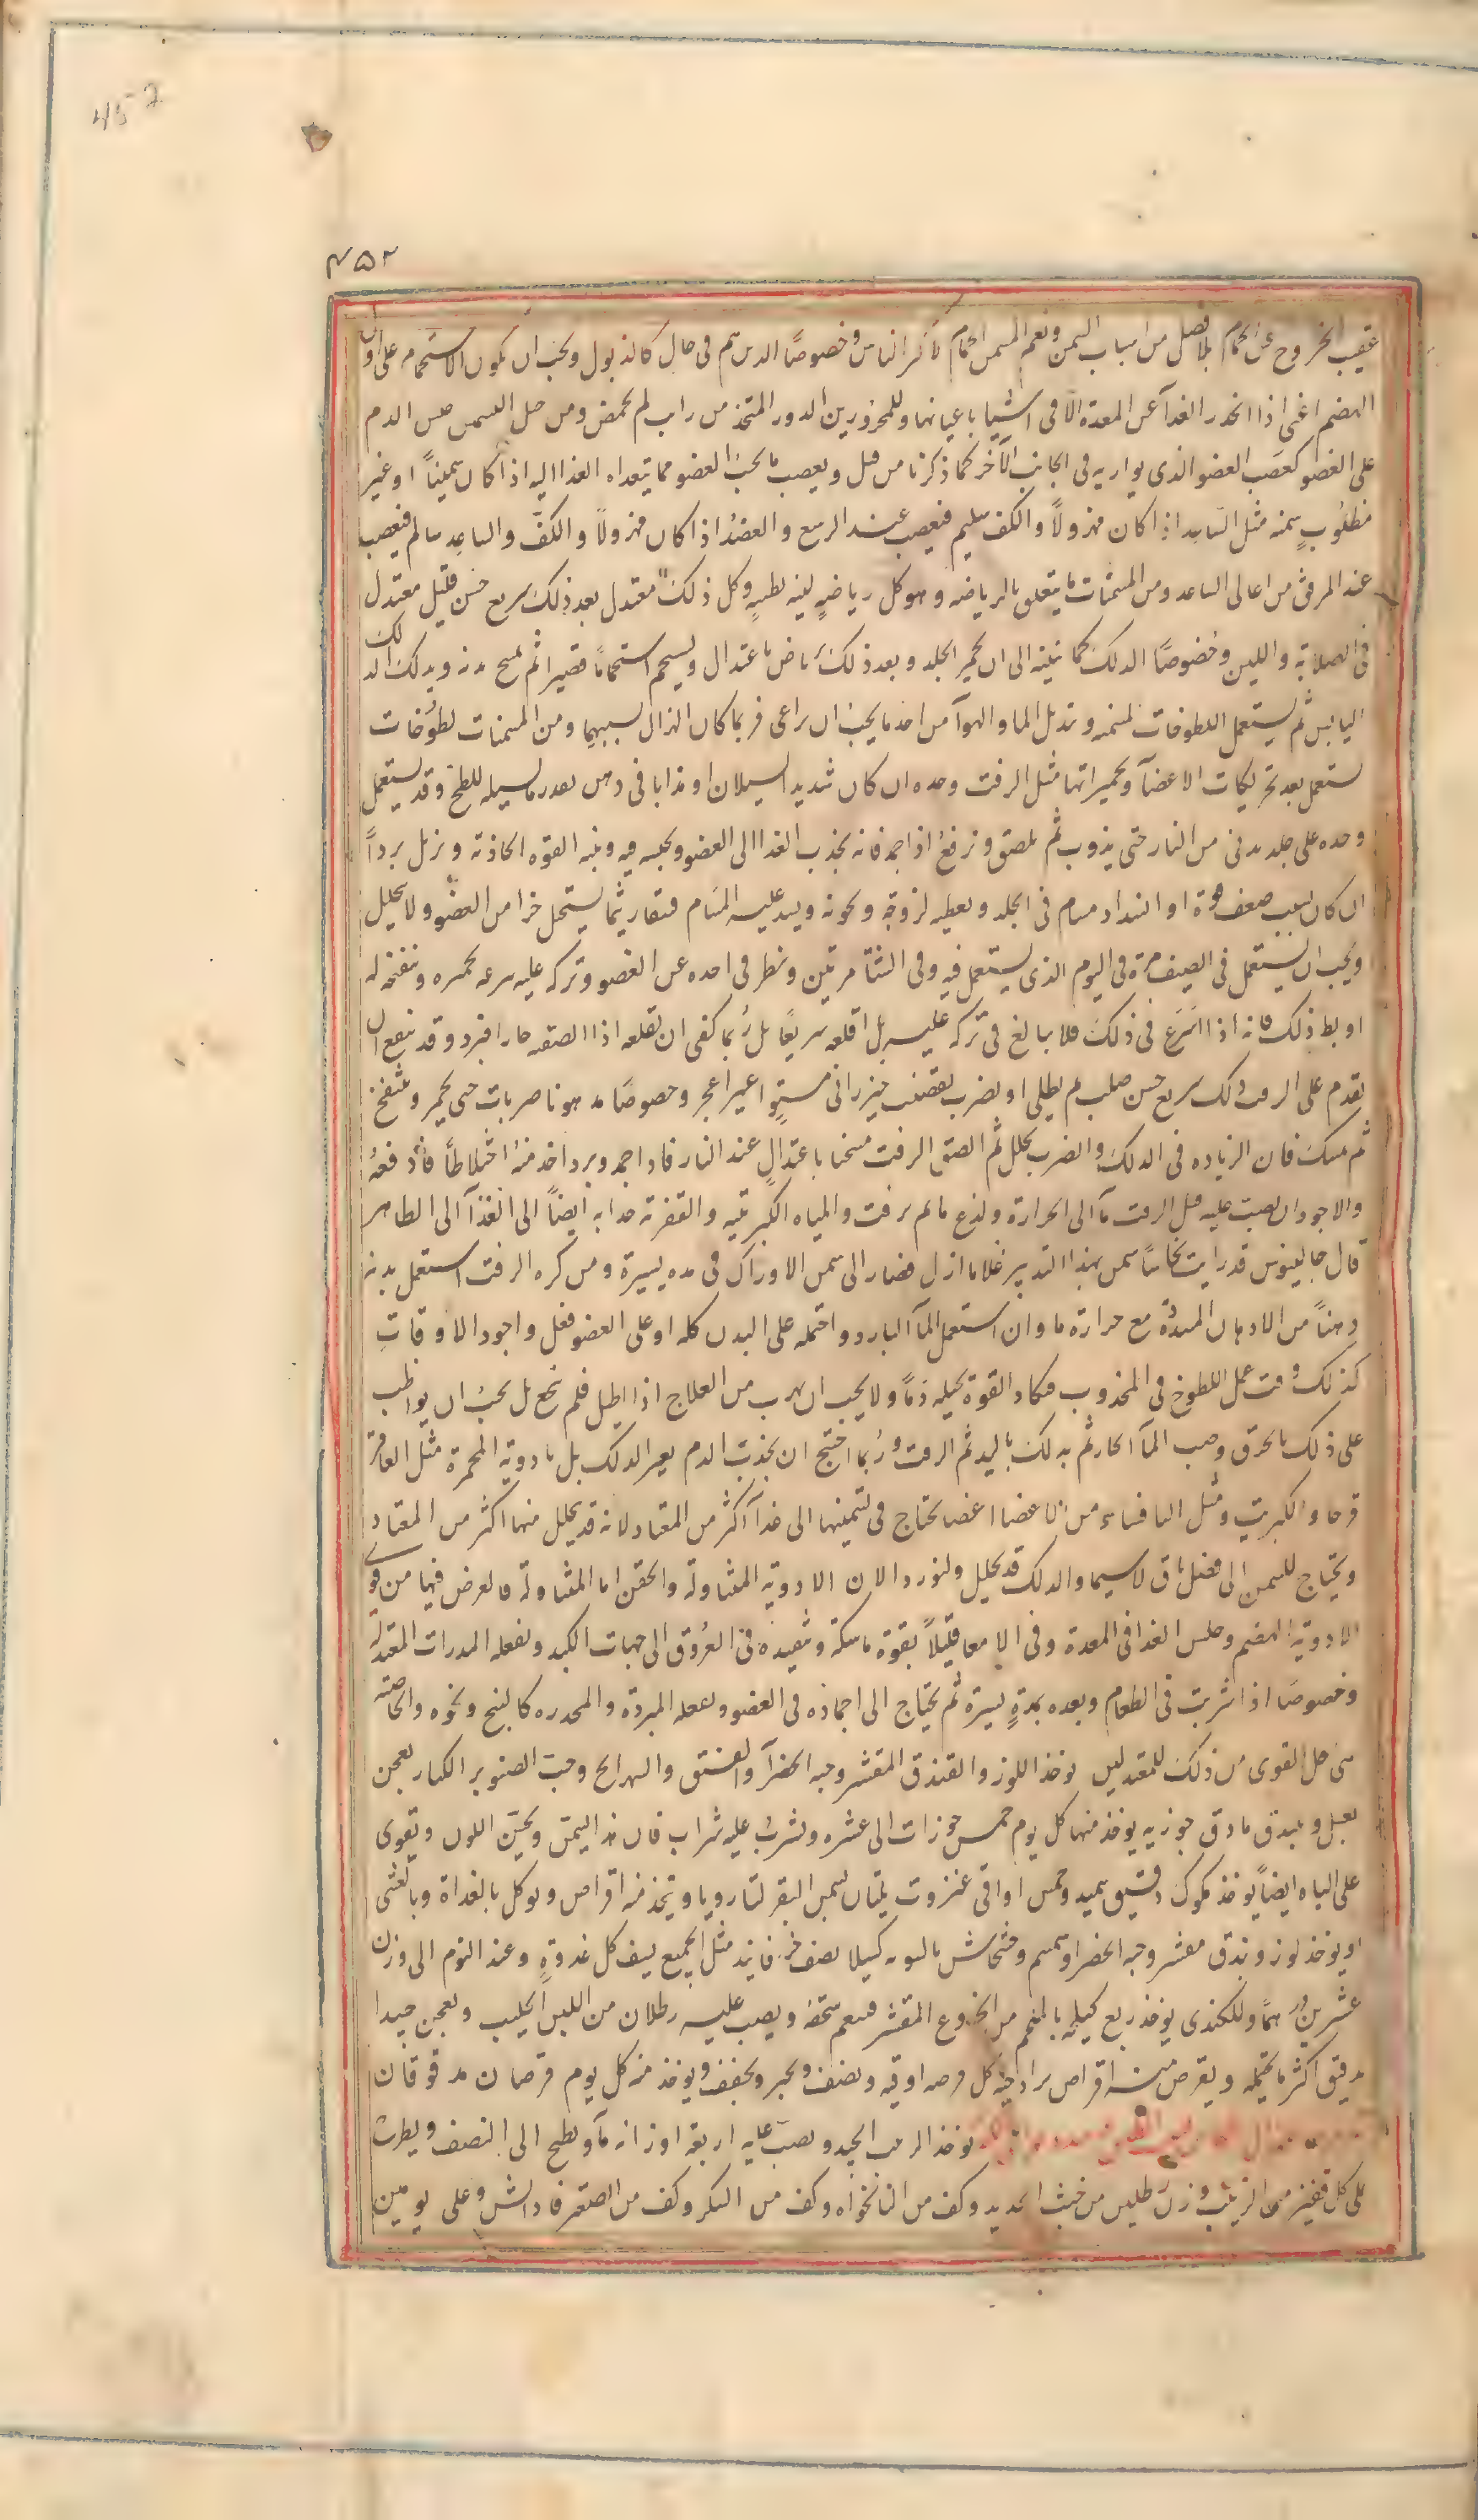 452
۴۵۲
عقيب الخروج عن الحمام بلا فصل من اسباب السمن ونعم المسمن الحمام لاكثر الناس وخصوصًا الذين هم في حال كالذبول ويجب ان يكون الاستحمام على اول
الهضم اعنى اذا انحدر الغدآ عن المعدة الا فى اشيا باعيانها وللمحرورين الدوغ المتخذ من رايب لم يحمض ومن حيل السمن حبس الدم
على العضو كعصب العضو الذى يوازيه فى الجانب الآخر كما ذكرنا من قبل ويعصب ما تحت العضو مما يتعداه الغذا اليه اذا كان سمينًا او غير
مطلوبٍ سمنه مثل الساعد اذا كان مهزولًا والكف سليم فيعصب عند الرسغ والعضدُ اذا كان مهزولًا والكفّ والساعد سالم فيعصب
عند المرفق من اعالى الساعد ومن المسمنات ما يتعلق بالرياضه وهو كل رياضةٍ لينه بطيئةٍ وكل ذلك معتدل بعد ذلك سريع خشن قليل معتدل
فى الصلابة واللين وخصوصًا الدلك كما نبينه الى ان يحمر الجلد وبعد ذلك يُراض باعتدال ويستحم استحمامًا قصيرا ثم يمسح بدنه ويدلك الدلك
اليابس ثم يستعمل اللطوخات المسمنه وتبديل الما والهوآ من احد ما يجب ان يراعى فربما كان الهزال بسببهما ومن المسمنات لطوخات
تستعمل بعد تحريكات الاعضآ وتحميراتها مثل الزفت وحده ان كان شديد السيلان او مذابا فى دهن بقدر ما يسيله للطخ وقد يستعمل
وحده على جلد يدنى من النار حتى يذوب ثم يلصق ويرفعُ اذا جمد فانه يجذب الغذا الى العضو ويحبسه فيه وينبه القوه الجاذبة ويزيل بردًا
ان كان لسبب ضعف قوة او انسداد مسام فى الجلد ويعطيه لزوجة وثخونه ويسد عليه المسام فيبقى ريثما يستحيل جزا من العضو ولا يتحلل
ويجب ان يستعمل فى الصيف مرة فى اليوم الذى يستعمل فيه وفى الشتآ مرتين وينظر فى اخذه عن العضو وتركه عليه سرعه تحمره وتنفخه له
او بطؤ ذلك فانه اذا اسرع فى ذلك فلا يبالغ فى تركه عليه بل اقلعه سريعًا بل رُبما كفى ان تقلعه اذا الصقه حارا فبرد وقد ينفع ان
يقدم على الزفت دلك سريع خشن صلب ثم يطلى او يضرب بقضيب خيزرانى مستوٍ غير اعجر وخصوصًا مدهونا ضربات حتى يحمر وينتفخ
ثم يمسك فان الزياده فى الدلك والضرب يحلل ثم الصق الزفت مسخنا باعتدالٍ عند النار فاذا جمد وبرد اخذ منهُ اختلاطًا فى دفعة
والاجود ان يصب عليه قبل الزفت مآ الى الحرارة ولذع ما ثم يزفت والمياه الكبريتيه والقفرية جذابه ايضًا الى الغذآ الى الظاهر
قال جالينوس قد رايت نخاسًا سمن بهذا التدبير غلاما ازل فصار الى سمن الاوراك فى مده يسيرة ومن كره الزفت استعمل بدنه
دهنًا من الادهان المسددة مع حرارة ما وان استعمل المآ البارد واحتمله على البدن كله او على العضو فعل واجود الاوقاتِ
كذلك وقت عمل اللطوخ فى المجذوب فيكاد القوة تحيله دمًا ولا يجب ان يهرب من العلاج اذا ابطل فلم ينجع بل يجبُ ان يواظب
على ذلك بالخرق وصب المآ الحار ثم يدلك باليد ثم الزفت ورُبما احتيج ان يجذب الدم بغير الدلك بل بادوية المحمرة مثل العاقر
قرحا والكبريت ومثل الثافسيا ومن الاعضا اعضا يحتاج فى تسمينها الى غذآ اكثر من المعتاد لانه قد يتحلل منها اكثر من المعتاد
ويحتاج للسمن الى فضل باق لا سيما والدلك قد يحلل ولنورد الان الادوية المتناولة والحقن اما المتناولة فالغرض فيها من قوى
الادوية الهضم وحبس الغذا فى المعدة وفى الامعا قليلًا بقوة ماسكة وتنفيذه فى العُروق الى جهات الكبد وتفعله المدرات المعتدلة
وخصوصًا اذا شربت فى الطعام وبعده بمدةٍ يسيرة ثم يحتاج الى اجماده فى العضو وتفعله المبردة والمخدره كالبنج ونحوه والخاصيه
على القوى من ذلك للمعتدلين يوخذ اللوز والفندق المقشر وحبه الخضرآ والفستق والشهدانج وحب الصنوبر الكبار يعجن
بعسل ويبندق بنادق جوزيه يوخذ منها كل يوم خمس جوزات الى عشره ويشربُ عليه شراب فان هذا يسمن ويحسّن اللون ويقوى
على الباه ايضًا يوخذ مكوك دقيق سميد وخمس اواقى عنزروت يلتان بسمن البقر لتا رويا ويتخذ منه اقراص ويوكل بالغداة وبالعشى
او يوخذ لوز وبندق مقشر وحبه الخضرا وسمسم وخشخاش بالسويه كسيلا نصف جزء فانيذ مثل الجميع يسف كل غدوةٍ وعند النوم الى وزن
عشرين درهمًا وللكندى يوخذ ربع كيلجه بالملجم من الخروع المقشر فينعم سحقه ويصب عليه رطلان من اللبن الحليب ويعجن جيدا
بدقيق اكثر ما يحتمله ويقرص منه اقراص برازجيه كل قرصه اوقيه ونصف ويخبز ويجفف ويوخذ منه كل يوم قرصان مدقوقان
يوخذ الزبيب الجيد ويصبّ عليه اربعة اوزانه مآ ويطبخ الى النصف ويطرح
على كل قفيز من الزبيب وزن رطلين من خبث الحديد وكف من النانخواه وكف من السكر وكف من الصعتر فاذا نش وغلى يومين